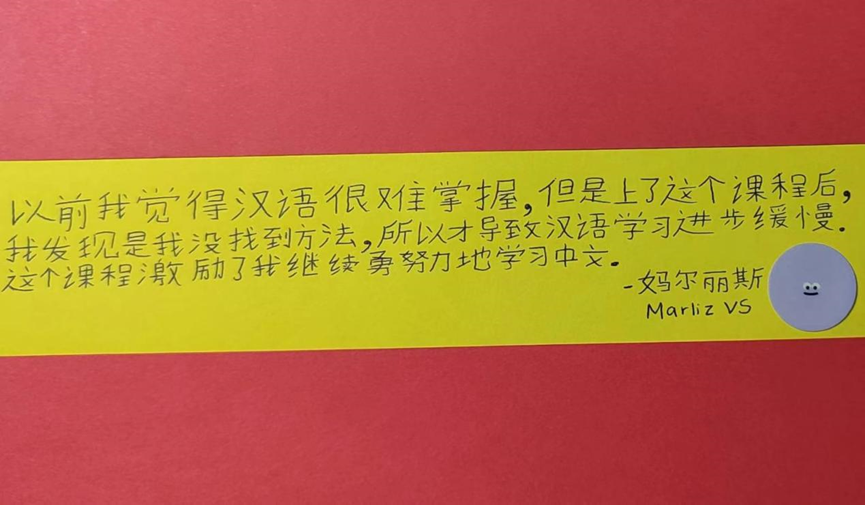 以前我觉得汉语很难掌握,但是上了这个课程后,
我发现是我没找到方法,所以才导致汉语学习进步缓慢.
这个课程激励了我继续勇努力地学习中文.
-妈尔丽斯
Marliz VS